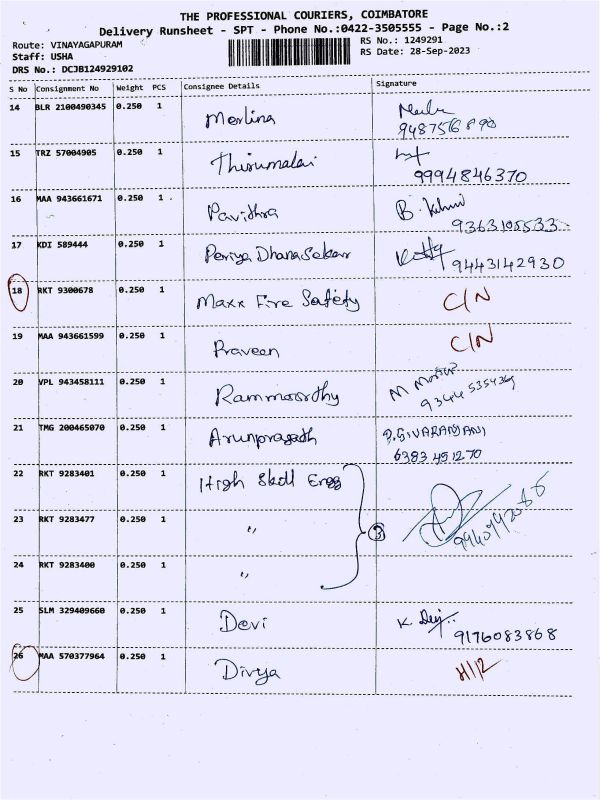 THE PROFESSIONAL COURIERS, COIMBATORE
Delivery Runsheet - SPT - Phone No.:0422-3505555 - Page No.:2
Route: VINAYAGAPURAM
Staff: USHA
DRS No.: DCJB124929102
RS No.: 1249291
RS Date: 28-Sep-2023
S No Consignment No Weight PCS Consignee Details Signature
14 BLR 2100490345 0.250 1 Merlina
9487568890
15 TRZ 57004905 0.250 1 Thirumalai
9994846370
16 MAA 943661671 0.250 1 Pavithra B.
9363105533
17 KDI 589444 0.250 1 Periya Dhanasekar
9443142930
18 RKT 9300678 0.250 1 Maxx Fire Safety C/N
19 MAA 943661599 0.250 1 Praveen C/N
20 VPL 943458111 0.250 1 Rammoorthy M
21 TMG 200465070 0.250 1 Arunprasath P.SIVARANJANI
6383 451270
22 RKT 9283401 0.250 1 High Skill Engg
23 RKT 9283477 0.250 1 " 3
24 RKT 9283400 0.250 1 "
25 SLM 329409660 0.250 1 Devi K. Devi
9176083868
26 MAA 570377964 0.250 1 Divya